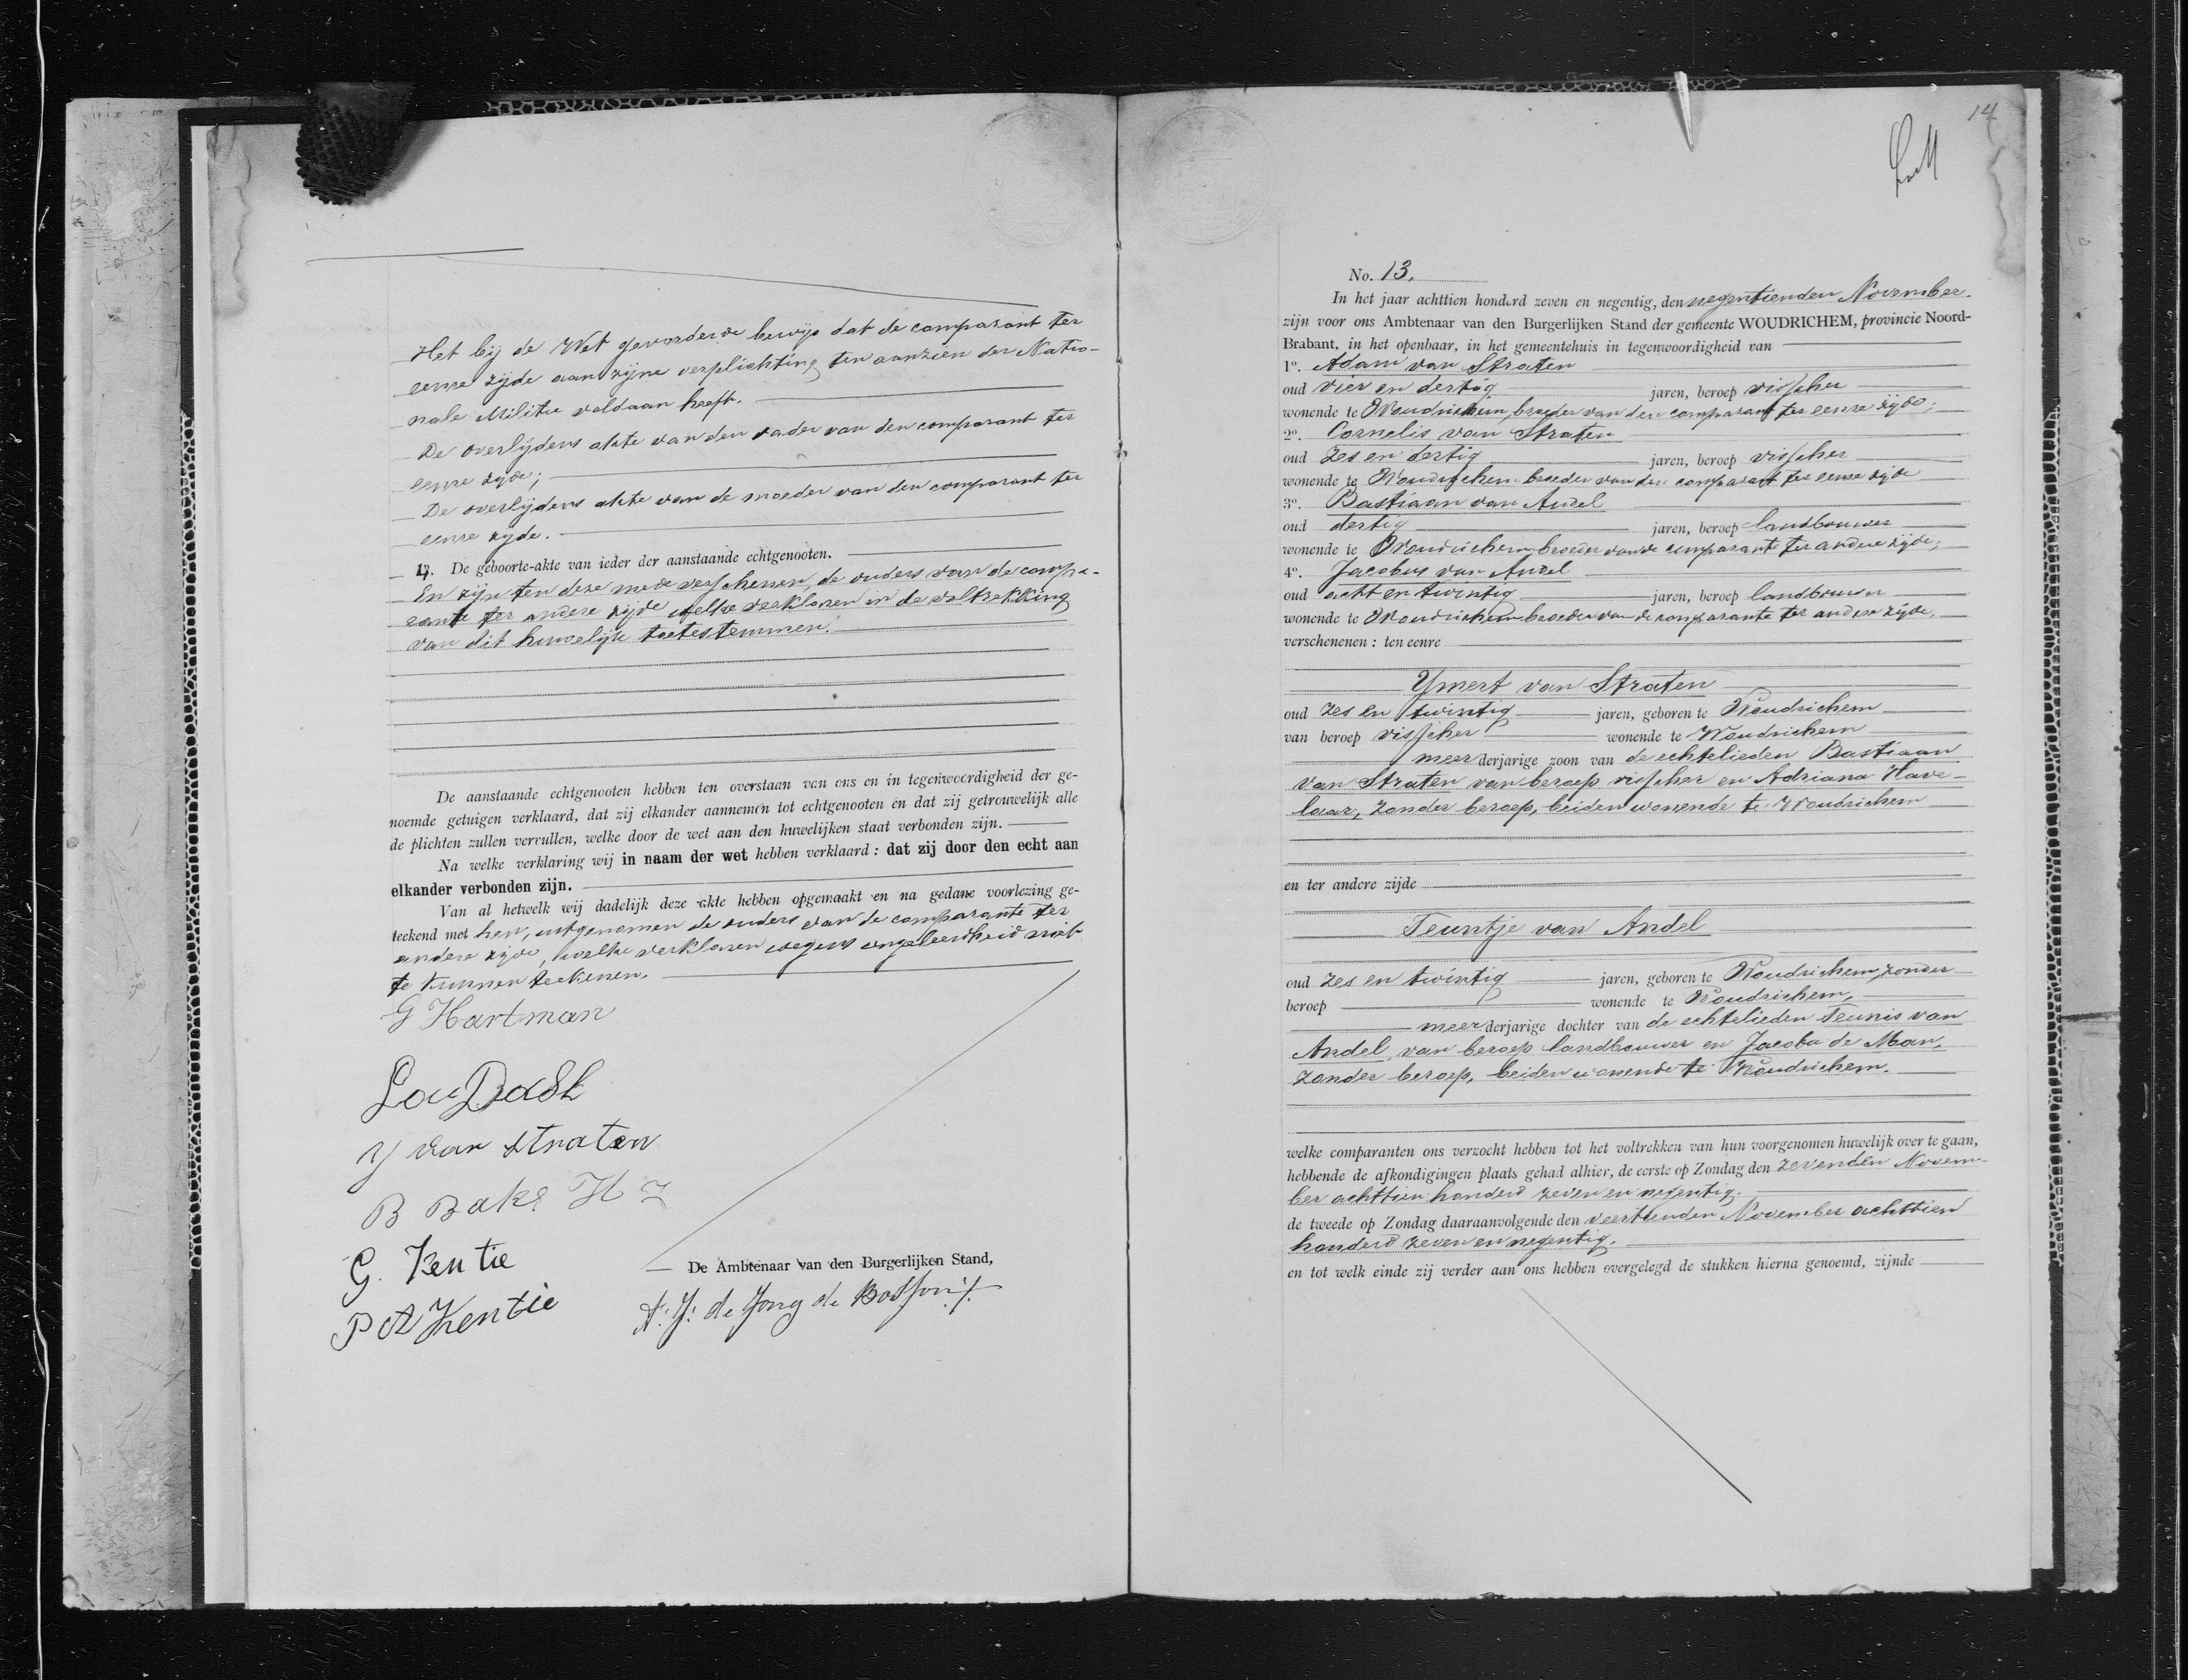 Het bij de Wet gevorderde bewijs dat de comparant ter
eenre zijde aan zijne verplichting ten aanzien der Natio-
nale Militie voldaan heeft.
De overlijdens akte van den vader van den comparant ter
eenre zijde;
De overlijdens akte van de moeder van den comparant ter
eenre zijde.
De geboorte-akte van ieder der aanstaande echtgenooten.
En zijn ten deze mede verschenen, de ouders van de compa-
rante ter andere zijde welke verklaren in de voltrekking
van dit huwelijk toetestemmen.
De aanstaande echtgenooten hebben ten overstaan van ons en in tegenwoordigheid der ge-
noemde getuigen verklaard, dat zij elkander aannemen tot echtgenooten en dat zij getrouwelijk alle
de plichten zullen vervullen, welke door de wet aan den huwelijken staat verbonden zijn.
Na welke verklaring wij in naam der wet hebben verklaard: dat zij door den echt aan
elkander verbonden zijn.
Van al hetwelk wij dadelijk deze akte hebben opgemaakt en na gedane voorlezing ge-
teekend met hen, uitgenomen de ouders van de comparante ter
andere zijde, welke verklaren wegens ongeleerdheid niet
te kunnen teekenen.
G Hartman
Y van Straten
B Bake H Z
G. Kentie
P A Kentie
De Ambtenaar van den Burgerlijken Stand,
A: J: de Jong de
14
No. 13.
In het jaar achttien honderd zeven en negentig, den negentienden November.
zijn voor ons Ambtenaar van den Burgerlijken Stand der gemeente WOUDRICHEM, provincie Noord-
Brabant, in het openbaar, in het gemeentehuis in tegenwoordigheid van
1º. Adam van Straten
oud vier en dertig jaren, beroep visscher
wonende te Woudrichem, broeder van den comparant ter eenre zijde;
2º. Cornelis van Straten
oud zes en dertig jaren, beroep visscher
wonende te Woudrichem broeder van den comparant ter eenre zijde
3º. Bastiaan van Andel
oud dertig jaren, beroep landbouwer
wonende te Woudrichem broeder van de comparante ter andere zijde;
4º. Jacobus van Andel
oud acht en twintig jaren, beroep landbouwer
wonende te Woudrichem broeder van de comparante ter andere zijde,
verschenenen: ten eenre
Ymert van Straten
oud zes en twintig jaren, geboren te Woudrichem
van beroep visscher wonende te Woudrichem
meerderjarige zoon van de echtelieden Bastiaan
van Straten van beroep visscher en Adriana Have-
laar, zonder beroep, beiden wonende te Woudrichem
en ter andere zijde
Teuntje van Andel
oud zes en twintig jaren, geboren te Woudrichem, zonder
beroep wonende te Woudrichem,
meerderjarige dochter van de echtelieden Teunis van
Andel, van beroep landbouwer en Jacoba de Man,
zonder beroep, beiden wonende te Woudrichem.
welke comparanten ons verzocht hebben tot het voltrekken van hun voorgenomen huwelijk over te gaan,
hebbende de afkondigingen plaats gehad alhier, de eerste op Zondag den zevenden Novem-
ber achttien honderd zeven en negentig.
de tweede op Zondag daaraanvolgende den veertienden November achttien
honderd zeven en negentig.
en tot welk einde zij verder aan ons hebben overgelegd de stukken hierna genoemd, zijnde